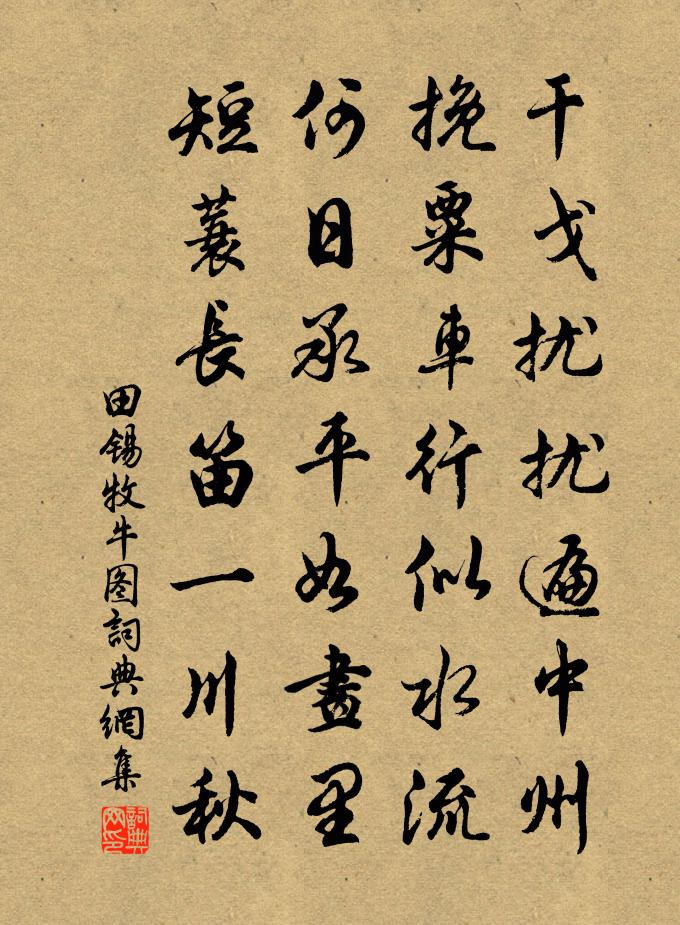 干戈扰扰遍中州
挽粟車行似水流
何日承平如畫里
短蓑長笛一川秋
田锡牧牛图詞典網集
詞典网印